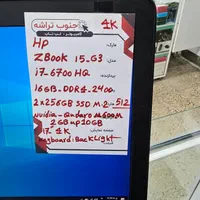 جنوب تراشه
4K
مارک:
HP
مدل:
ZBook 15.G3
پردازنده:
i7-6700HQ
16GB.DDR4.2400.
2x256GB SSD M.2=512
nvidia-Quadro M600M
2GB up 10GB
صفحه نمایش:
4K
Keyboard:BackLight